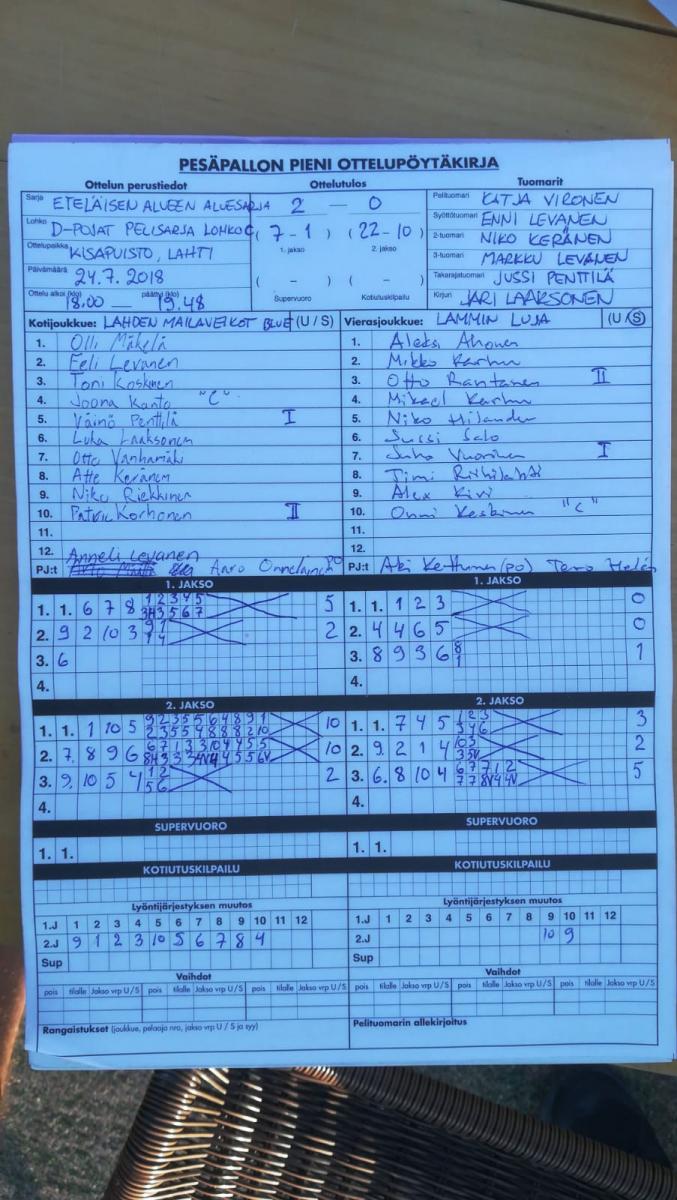 PESÄPALLON PIENI OTTELUPÖYTÄKIRJA
Ottelun perustiedot Ottelutulos Tuomarit
Sarja ETELÄISEN ALUEEN ALUESARJA 2 — 0 Pelituomari KATJA VIRONEN
Lohko D-POJAT PELISARJA LOHKO C ( 7-1 ) ( 22-10 ) Syöttötuomari ENNI LEVANEN
Ottelupaikka KISAPUISTO, LAHTI 1. jakso 2. jakso 2-tuomari NIKO KERÄNEN
3-tuomari MARKKU LEVANEN
Päivämäärä 24.7. 2018 ( - ) ( - ) Takarajatuomari JUSSI PENTTILÄ
Ottelu alkoi (klo) 18.00 — päättyi (klo) 19.48 Supervuoro Kotiutuskilpailu Kirjuri JARI LAAKSONEN
Kotijoukkue: LAHDEN MAILAVEIKOT BLUE (U / S) Vierasjoukkue: LAMMIN LUJA (U/S)
1. Olli Mäkelä 1. Aleksi Ahonen
2. Eeli Levanen 2. Mikko Karhu
3. Toni Koskinen 3. Otto Rantanen II
4. Joona Kanto "C" 4. Mikael Karhu
5. Väinö Penttilä I 5. Niko Hilander
6. Luka Laaksonen 6. Jussi Salo
7. Otto Vanhamäki 7. Juho Vuorinen I
8. Atte Keränen 8. Jimi
9. Niku Riekkinen 9. Alex Kivi
10. Patric Korhonen II 10. Onni Keskinen "C"
11. 11.
12. 12.
Anneli Levanen
PJ:t Aaro Onnelainen PO PJ:t Aki Kettunen (PO) Tero
1. JAKSO 1. JAKSO
1. 1. 6 7 8 1 2 3 4 5 5 1. 1. 1 2 3 0
3H 3 5 6 7
2. 9 2 10 3 9 1 2 2. 4 4 6 5 0
1 4
3. 6 3. 8 9 3 6 8 1
1
4. 4.
2. JAKSO 2. JAKSO
1. 1. 1 10 5 9 2 3 5 5 6 4 8 9 1 10 1. 1. 7 4 5 1 2 3 3
2 3 5 5 4 8 8 8 2 10 3 4 6
2. 7. 8 9 6 6 7 1 3 3 10 4 4 5 5 10 2. 9. 2 1 4 10 3 2
8H 3 3 3 4V 4 4 5 5 6V 3 5V
3. 9. 10 5 4 1 2 2 3. 6. 8 10 4 6 7 7 1 2 5
5 6 7 7 8V 4 4V
4. 4.
SUPERVUORO SUPERVUORO
1. 1. 1. 1.
KOTIUTUSKILPAILU KOTIUTUSKILPAILU
Lyöntijärjestyksen muutos Lyöntijärjestyksen muutos
1.J 1 2 3 4 5 6 7 8 9 10 11 12 1.J 1 2 3 4 5 6 7 8 9 10 11 12
2.J 9 1 2 3 10 5 6 7 8 4 2.J 10 9
Sup Sup
Vaihdot Vaihdot
pois tilalle Jakso vrp U / S pois tilalle Jakso vrp U / S pois tilalle Jakso vrp U / S pois tilalle Jakso vrp U / S
Rangaistukset (joukkue, pelaaja nro, jakso vrp U / S ja syy) Pelituomarin allekirjoitus